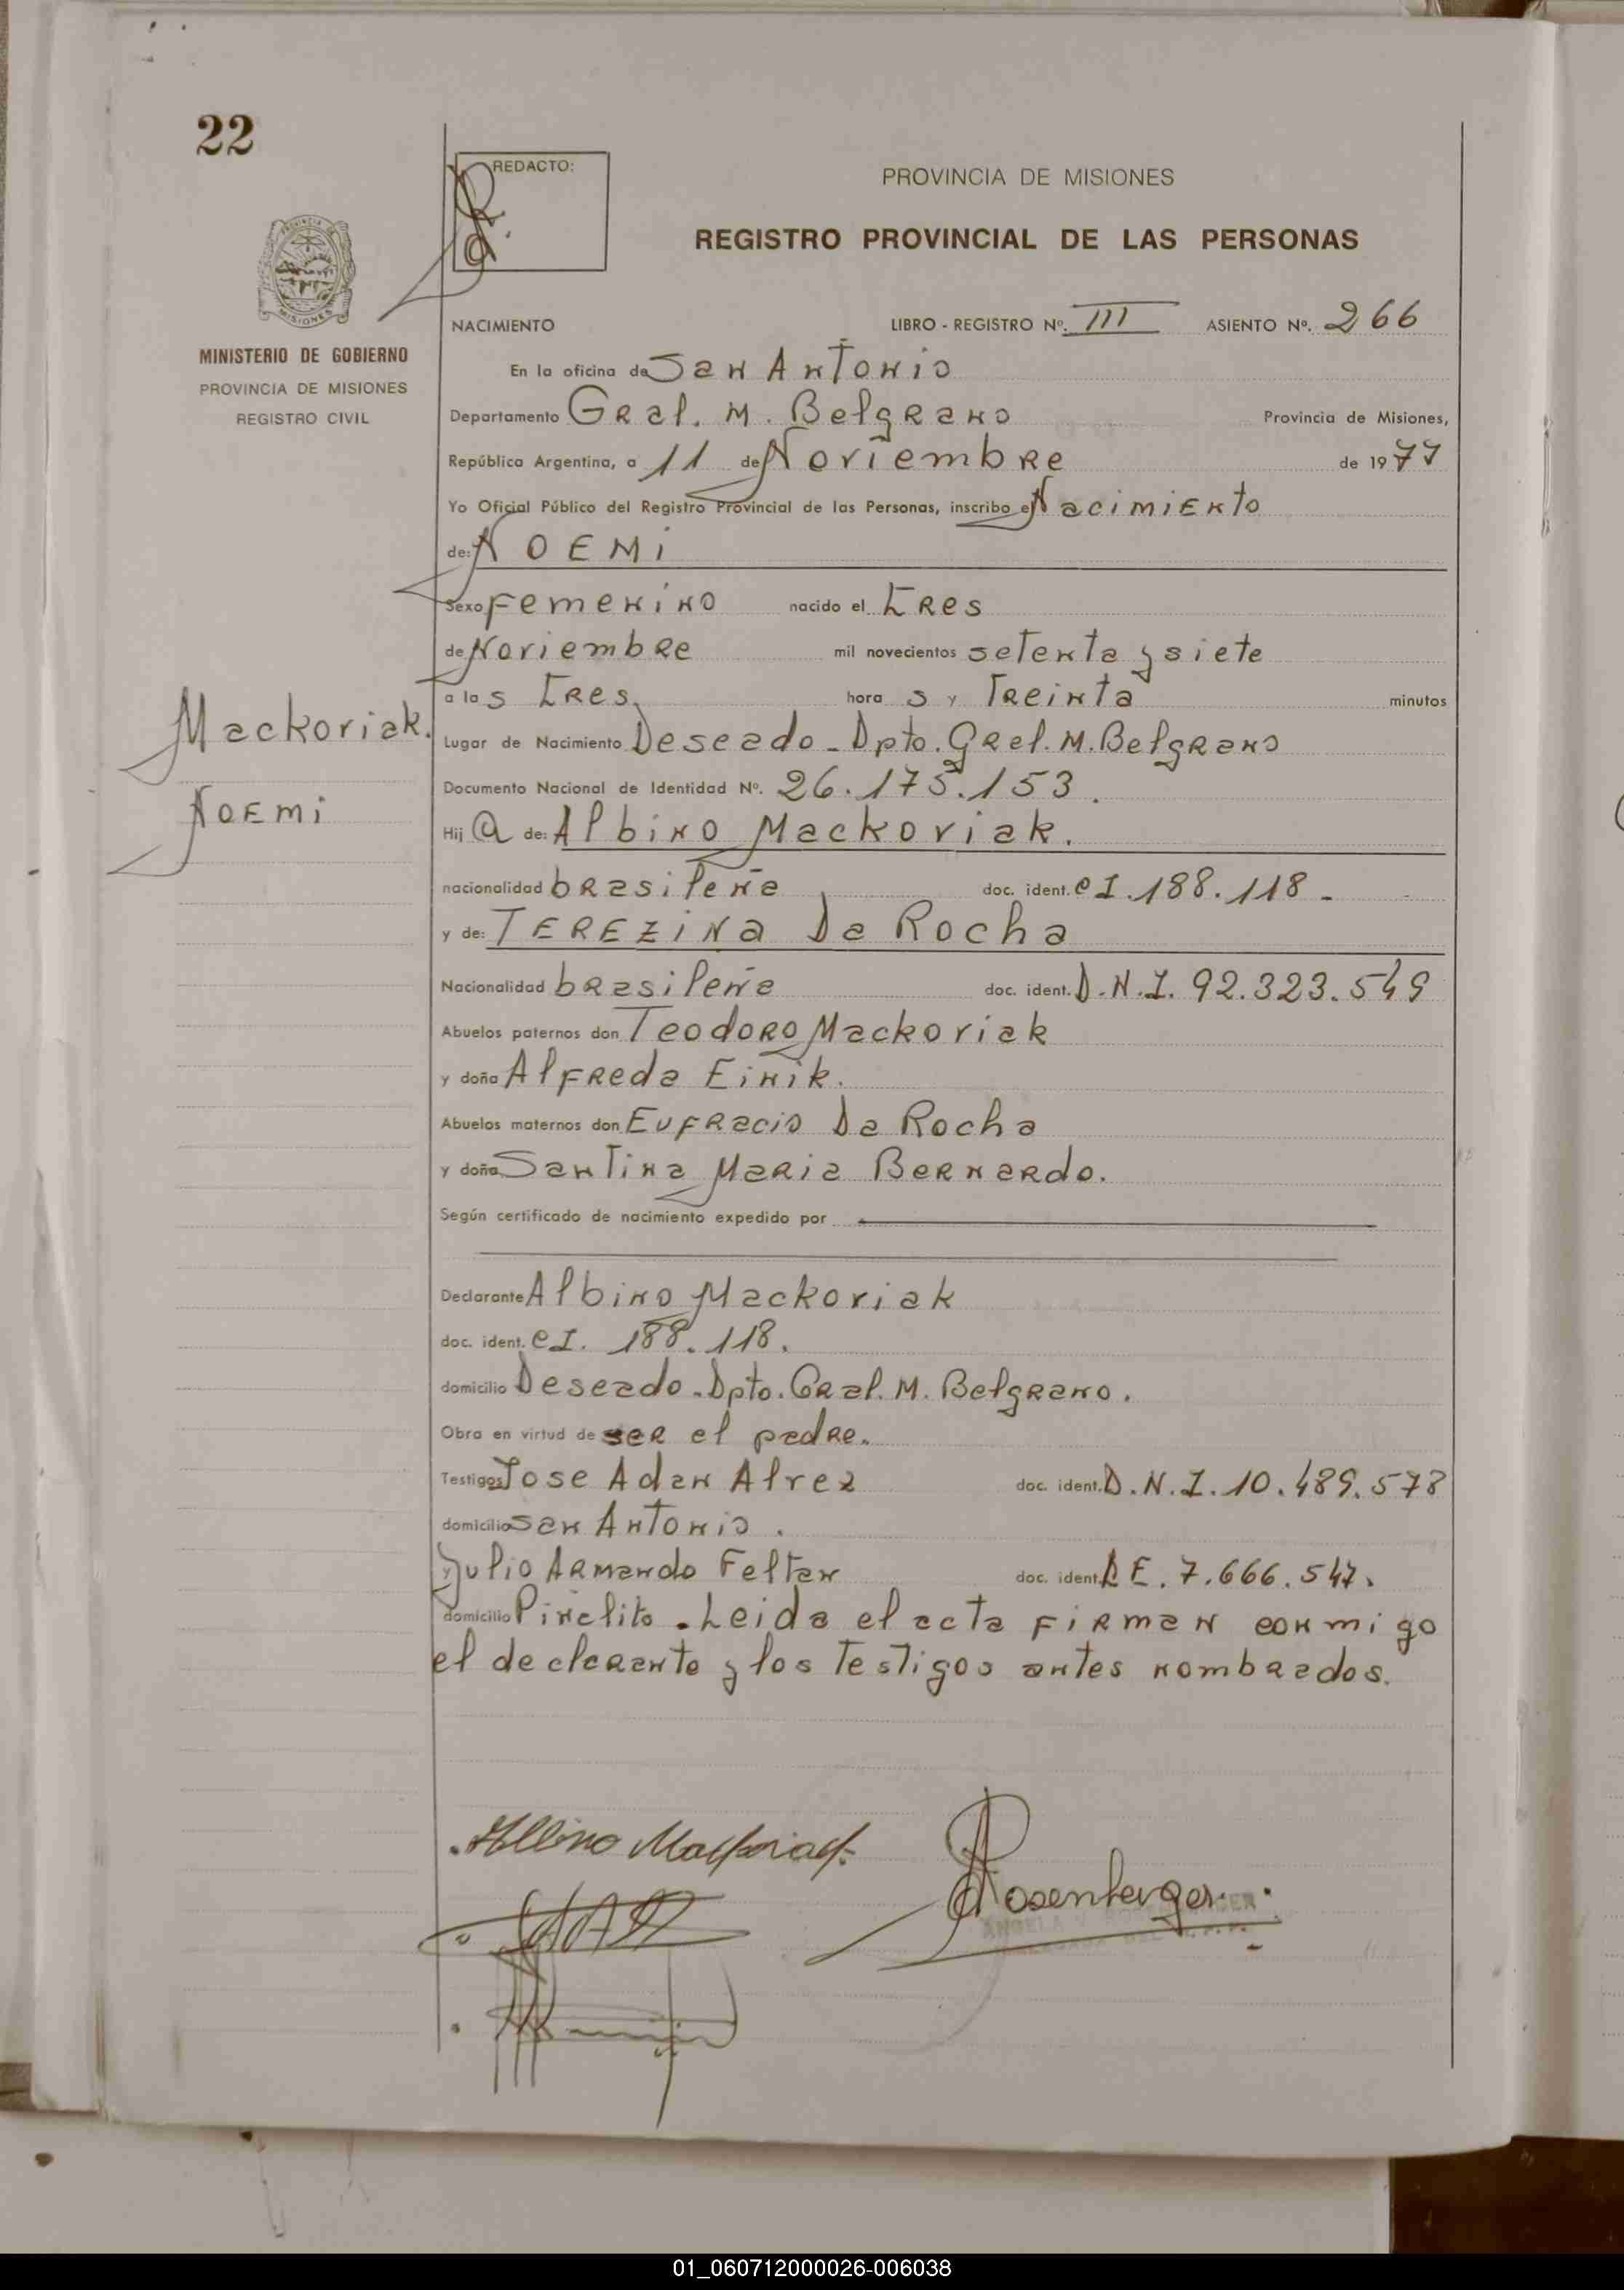 22
REDACTO:
PROVINCIA DE MISIONES
REGISTRO PROVINCIAL DE LAS PERSONAS
MISIONES
MINISTERIO DE GOBIERNO
PROVINCIA DE MISIONES
REGISTRO CIVIL
NACIMIENTO LIBRO - REGISTRO Nº. III ASIENTO Nº. 266
En la oficina de San Antonio
Departamento Gral. M. Belgrano Provincia de Misiones,
República Argentina, a 11 de Noviembre de 1977
Yo Oficial Público del Registro Provincial de las Personas, inscribo el Nacimiento
de: NOEMI
Sexo Femenino nacido el tres
de Noviembre mil novecientos setenta y siete
a las tres hora s y Treinta minutos
Mackoviak.
Noemi
Lugar de Nacimiento Deseado - Dpto. Gral. M. Belgrano
Documento Nacional de Identidad Nº. 26.175.153.
Hij a de: Albino Mackoviak.
nacionalidad brasileña doc. ident. CI. 188.118 -
y de: TEREZINA Da Rocha
Nacionalidad brasileña doc. ident. D.N.I. 92.323.549
Abuelos paternos don Teodoro Mackoviak
y doña Alfreda Einik.
Abuelos maternos don Eufracio Da Rocha
y doña Santina Maria Bernardo.
Según certificado de nacimiento expedido por
Declarante Albino Mackoviak
doc. ident. CI. 188.118.
domicilio Deseado - Dpto. Gral. M. Belgrano.
Obra en virtud de ser el padre.
Testigos Jose Adan Alvez doc. ident. D.N.I. 10.489.578
domicilio San Antonio.
y Julio Armando Feltan doc. ident. L E. 7.666.547.
domicilio Piñalito. Leida el acta firman conmigo
el declarante y los Testigos antes nombrados.
Albino Mackoviak.
Rosenberger.
01_060712000026-006038